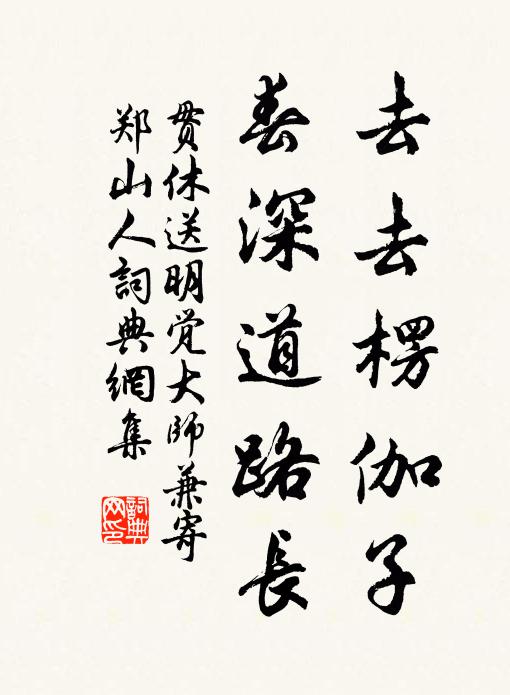 去去楞伽子
春深道路長
贯休送明觉大師兼寄
郑山人詞典網集
詞典
网印